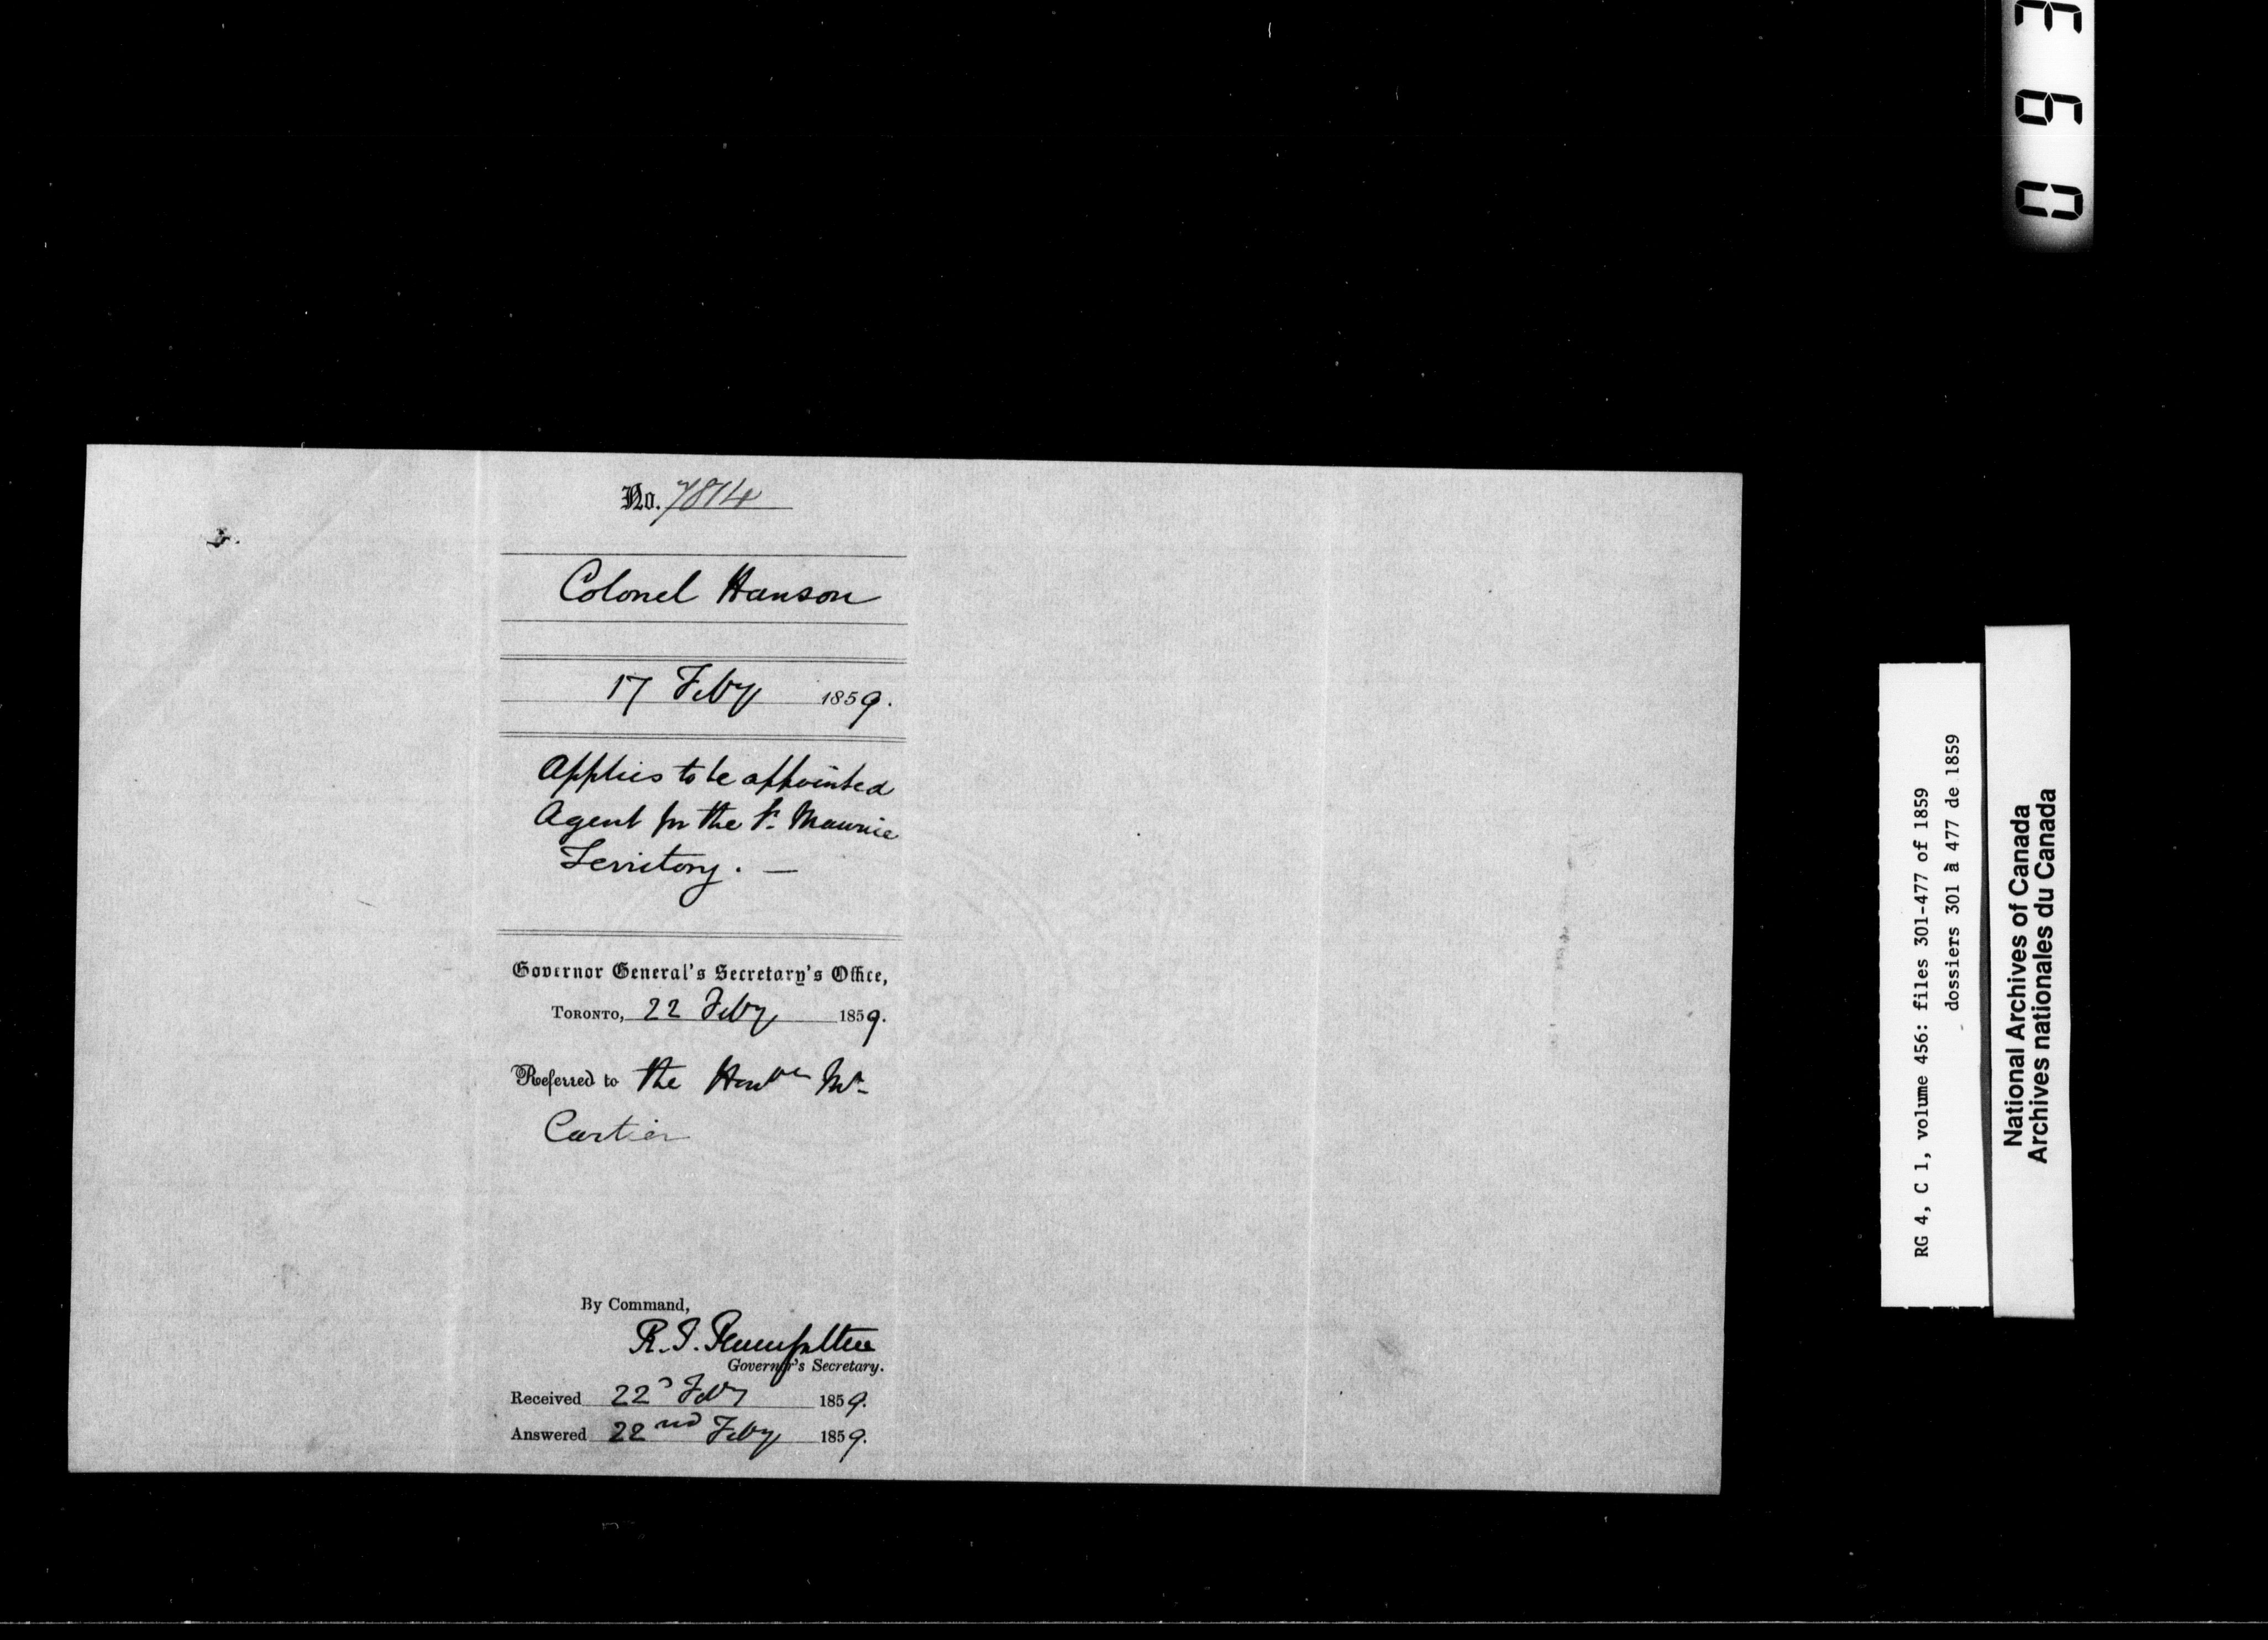 No. 7814
Colonel Hanson
17 Feby 1859.
Applies to be appointed
Agent for the St. Maurice
Territory. —
Governor General's Secretary's Office,
TORONTO, 22 Feby 1859.
Referred to the Honble Mr
Cartier
By Command,
R. T. Pennefather
Governor's Secretary.
Received 22d Feby 1859.
Answered 22nd Feby 1859.
RG 4, C 1, volume 456: files 301-477 of 1859
dossiers 301 à 477 de 1859
National Archives of Canada
Archives nationales du Canada